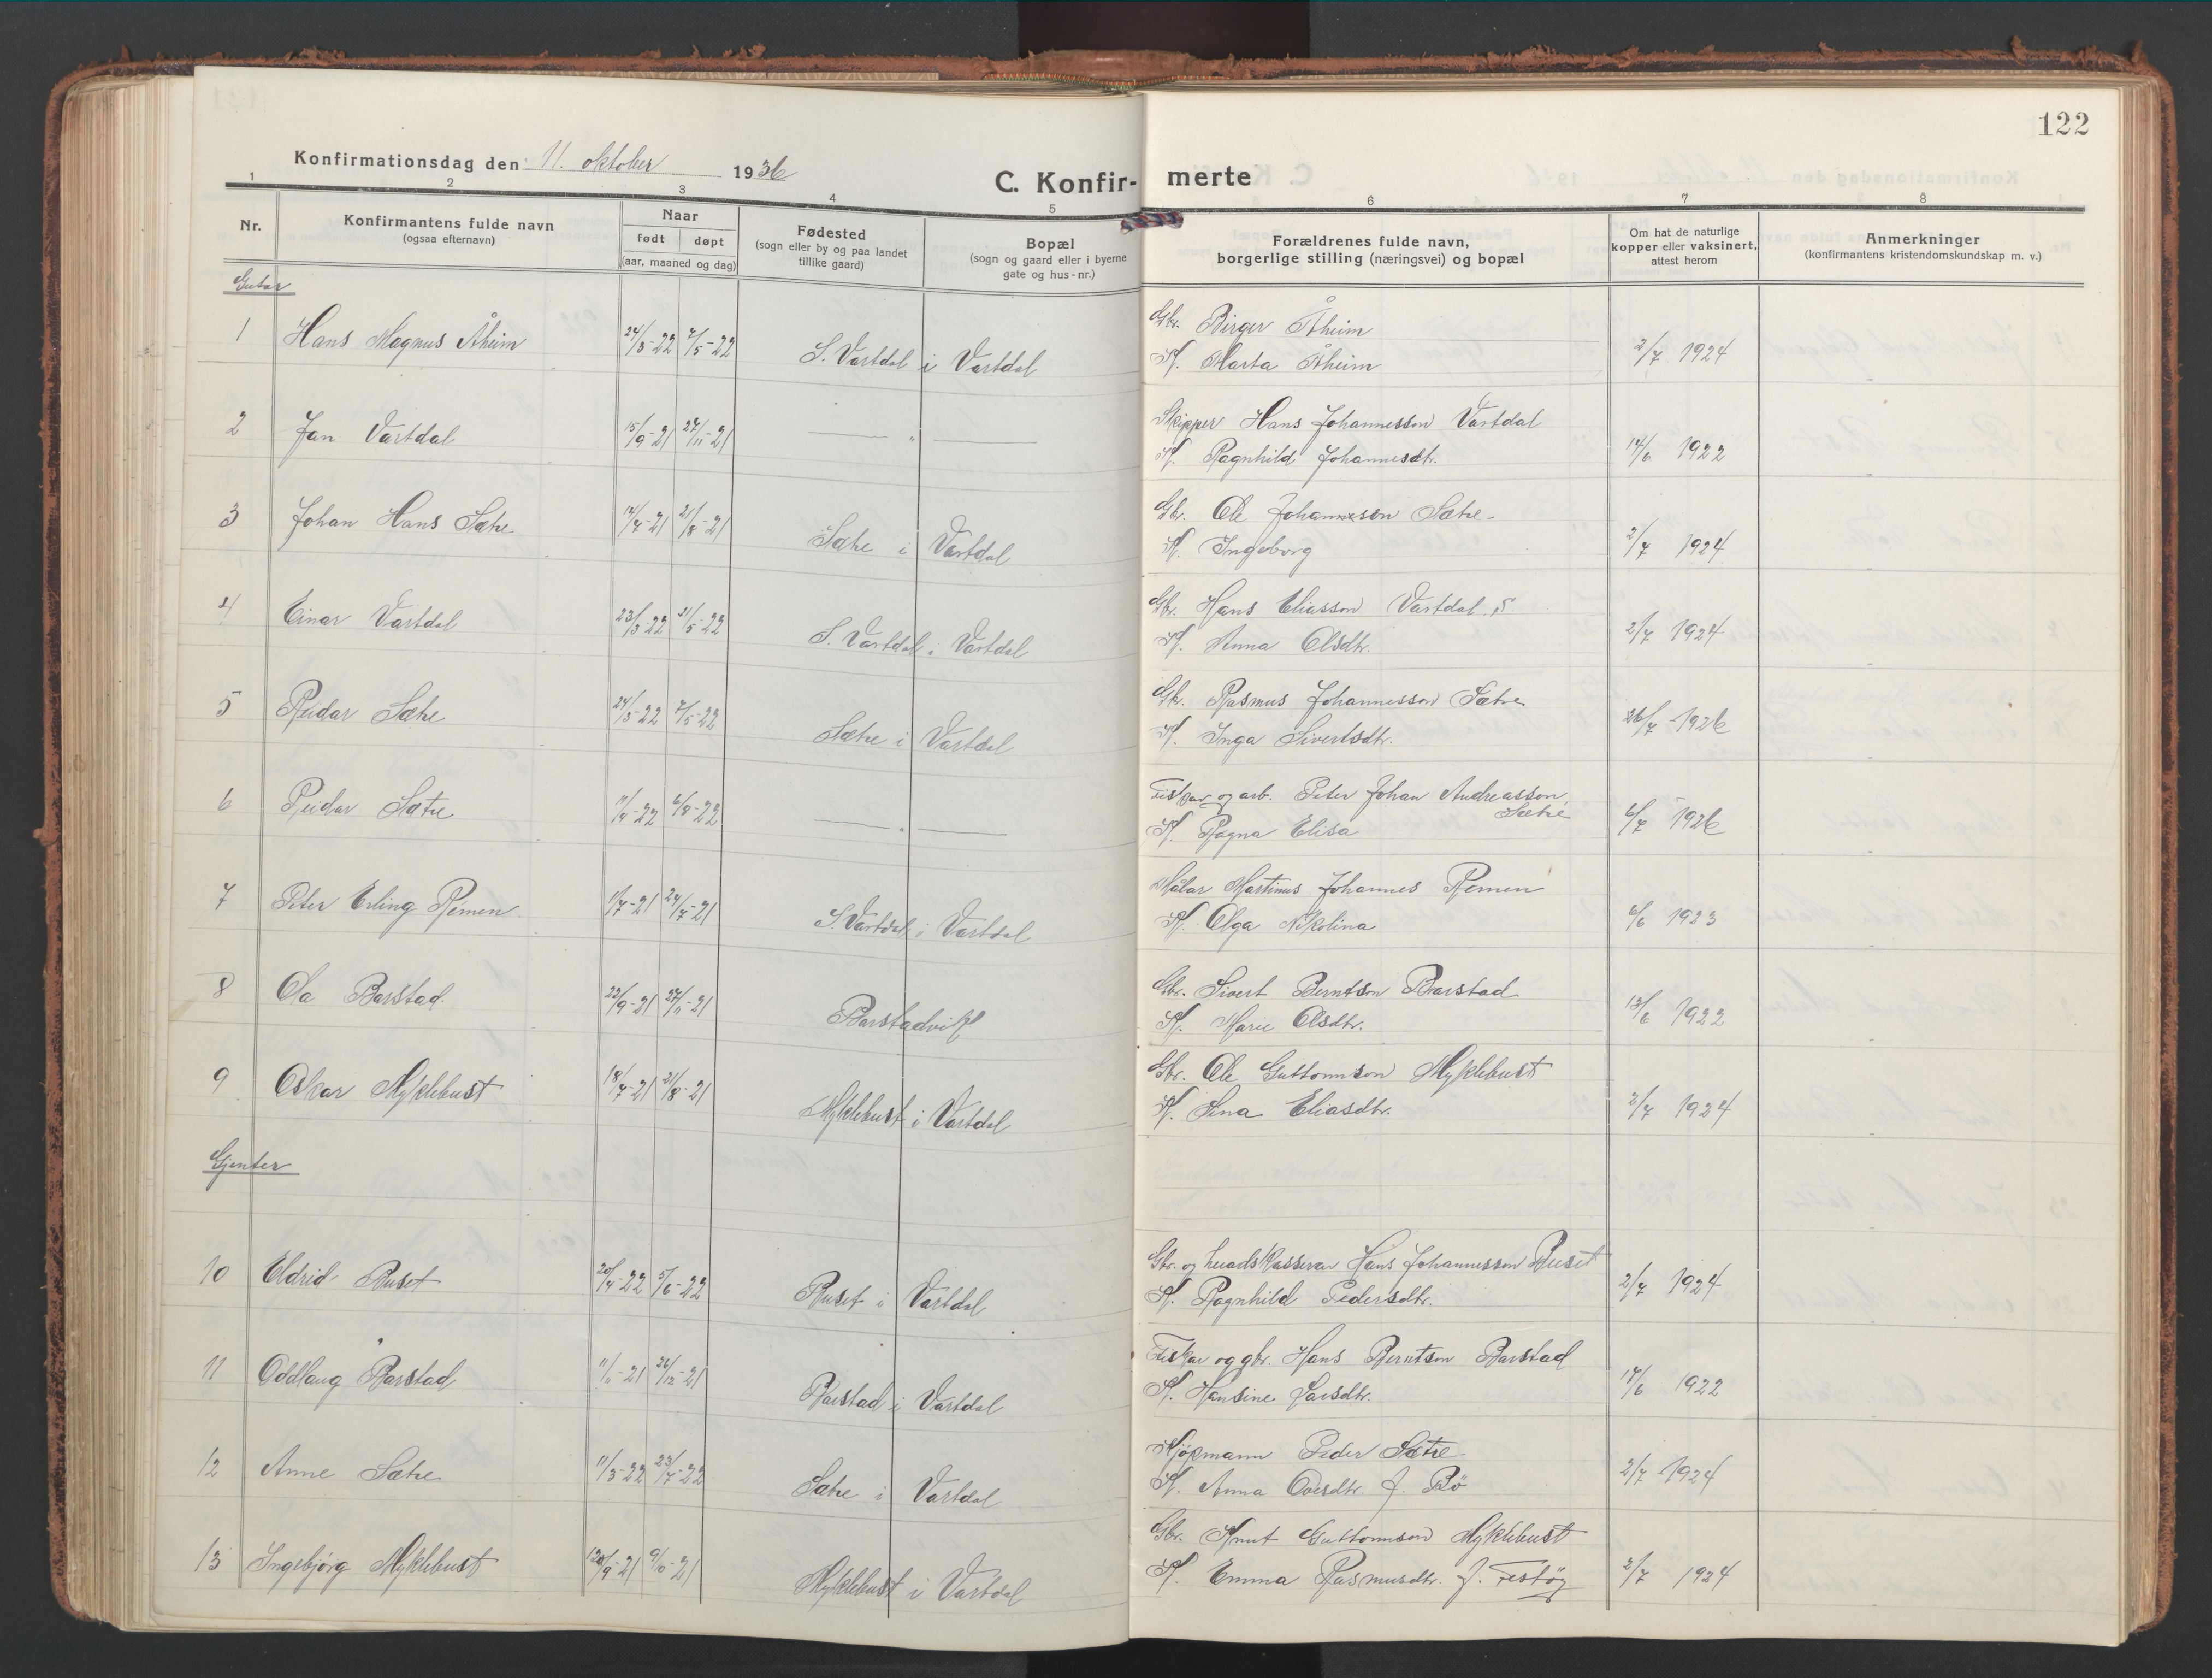 122
Konfirmationsdag den 11. oktober 1936
C. Konfir- merte
1 2 3 4 5 6 7 8
Nr.
Konfirmantens fulde navn
(ogsaa efternavn)
Naar
født døpt
(aar, maaned og dag)
Fødested
(sogn eller by og paa landet
tillike gaard)
Bopæl
(sogn og gaard eller i byerne
gate og hus-nr.)
Forældrenes fulde navn,
borgerlige stilling (næringsvei) og bopæl
Om hat de naturlige
kopper eller vaksinert,
attest herom
Anmerkninger
(konfirmantens kristendomskundskap m. v.)
Gutar
1 Hans Magnus Åheim 24/3-22 7/5-22 S. Vartdal i Vartdal Gbr. Birger Åheim
K. Marta Åheim 2/7 1924
2 Jan Vartdal 15/9-21 27/11-21 — " — Skipper Hans Johannesson Vartdal
K. Ragnhild Johannesdtr. 14/6 1922
3 Johan Hans Sætre 14/7-21 21/8-21 Sætre i Vartdal Gbr. Ole Johannesson Sætre
K. Ingeborg 2/7 1924
4 Einar Vartdal 23/3-22 21/5-22 S. Vartdal i Vartdal Gbr. Hans Eliasson Vartdal S
K. Anna Olsdtr. 2/7 1924
5 Reidar Sætre 24/3-22 7/5-22 Sætre i Vartdal Gbr. Rasmus Johannesson Sætre
K. Inga Sivertsdtr. 26/7 1926
6 Reidar Sætre 11/4-22 6/8-22 — " — Fiskar og arb. Peter Johan Andreasson
Sætre
K. Ragna Elisa 6/7 1926
7 Peter Erling Remen 11/7-21 24/7-21 S. Vartdal i Vartdal Målar Martinus Johannes Remen
K. Olga Nikolina 6/6 1923
8 Ola Barstad 22/9-21 27/11-21 Barstadvik Gbr. Sivert Berntson Barstad
K. Marie Olsdtr. 13/6 1922
9 Oskar Myklebust 18/7-21 21/8-21 Myklebust i Vartdal Gbr. Ole Guttormson Myklebust
K. Lina Eliasdtr. 2/7 1924
Gjenter
10 Eldrid Ruset 20/4-22 5/6-22 Ruset i Vartdal Gbr. og heradskasserar Hans Johannesson Ruset
K. Ragnhild Pedersdtr. 2/7 1924
11 Oddlaug Barstad 11/11-21 26/12-21 Barstad i Vartdal Fiskar og gbr. Hans Berntson Barstad
K. Hansine Larsdtr. 14/6 1922
12 Anne Sætre 11/3-22 23/7-22 Sætre i Vartdal Kjøpmann Peder Sætre
K. Anna Ovesdtr. f. Bö 2/7 1924
13 Ingebjørg Myklebust 9-21 9/10-21 Myklebust i Vartdal Gbr. Knut Guttormson Myklebust
K. Emma Rasmusdtr. f. Festøy 2/7 1924